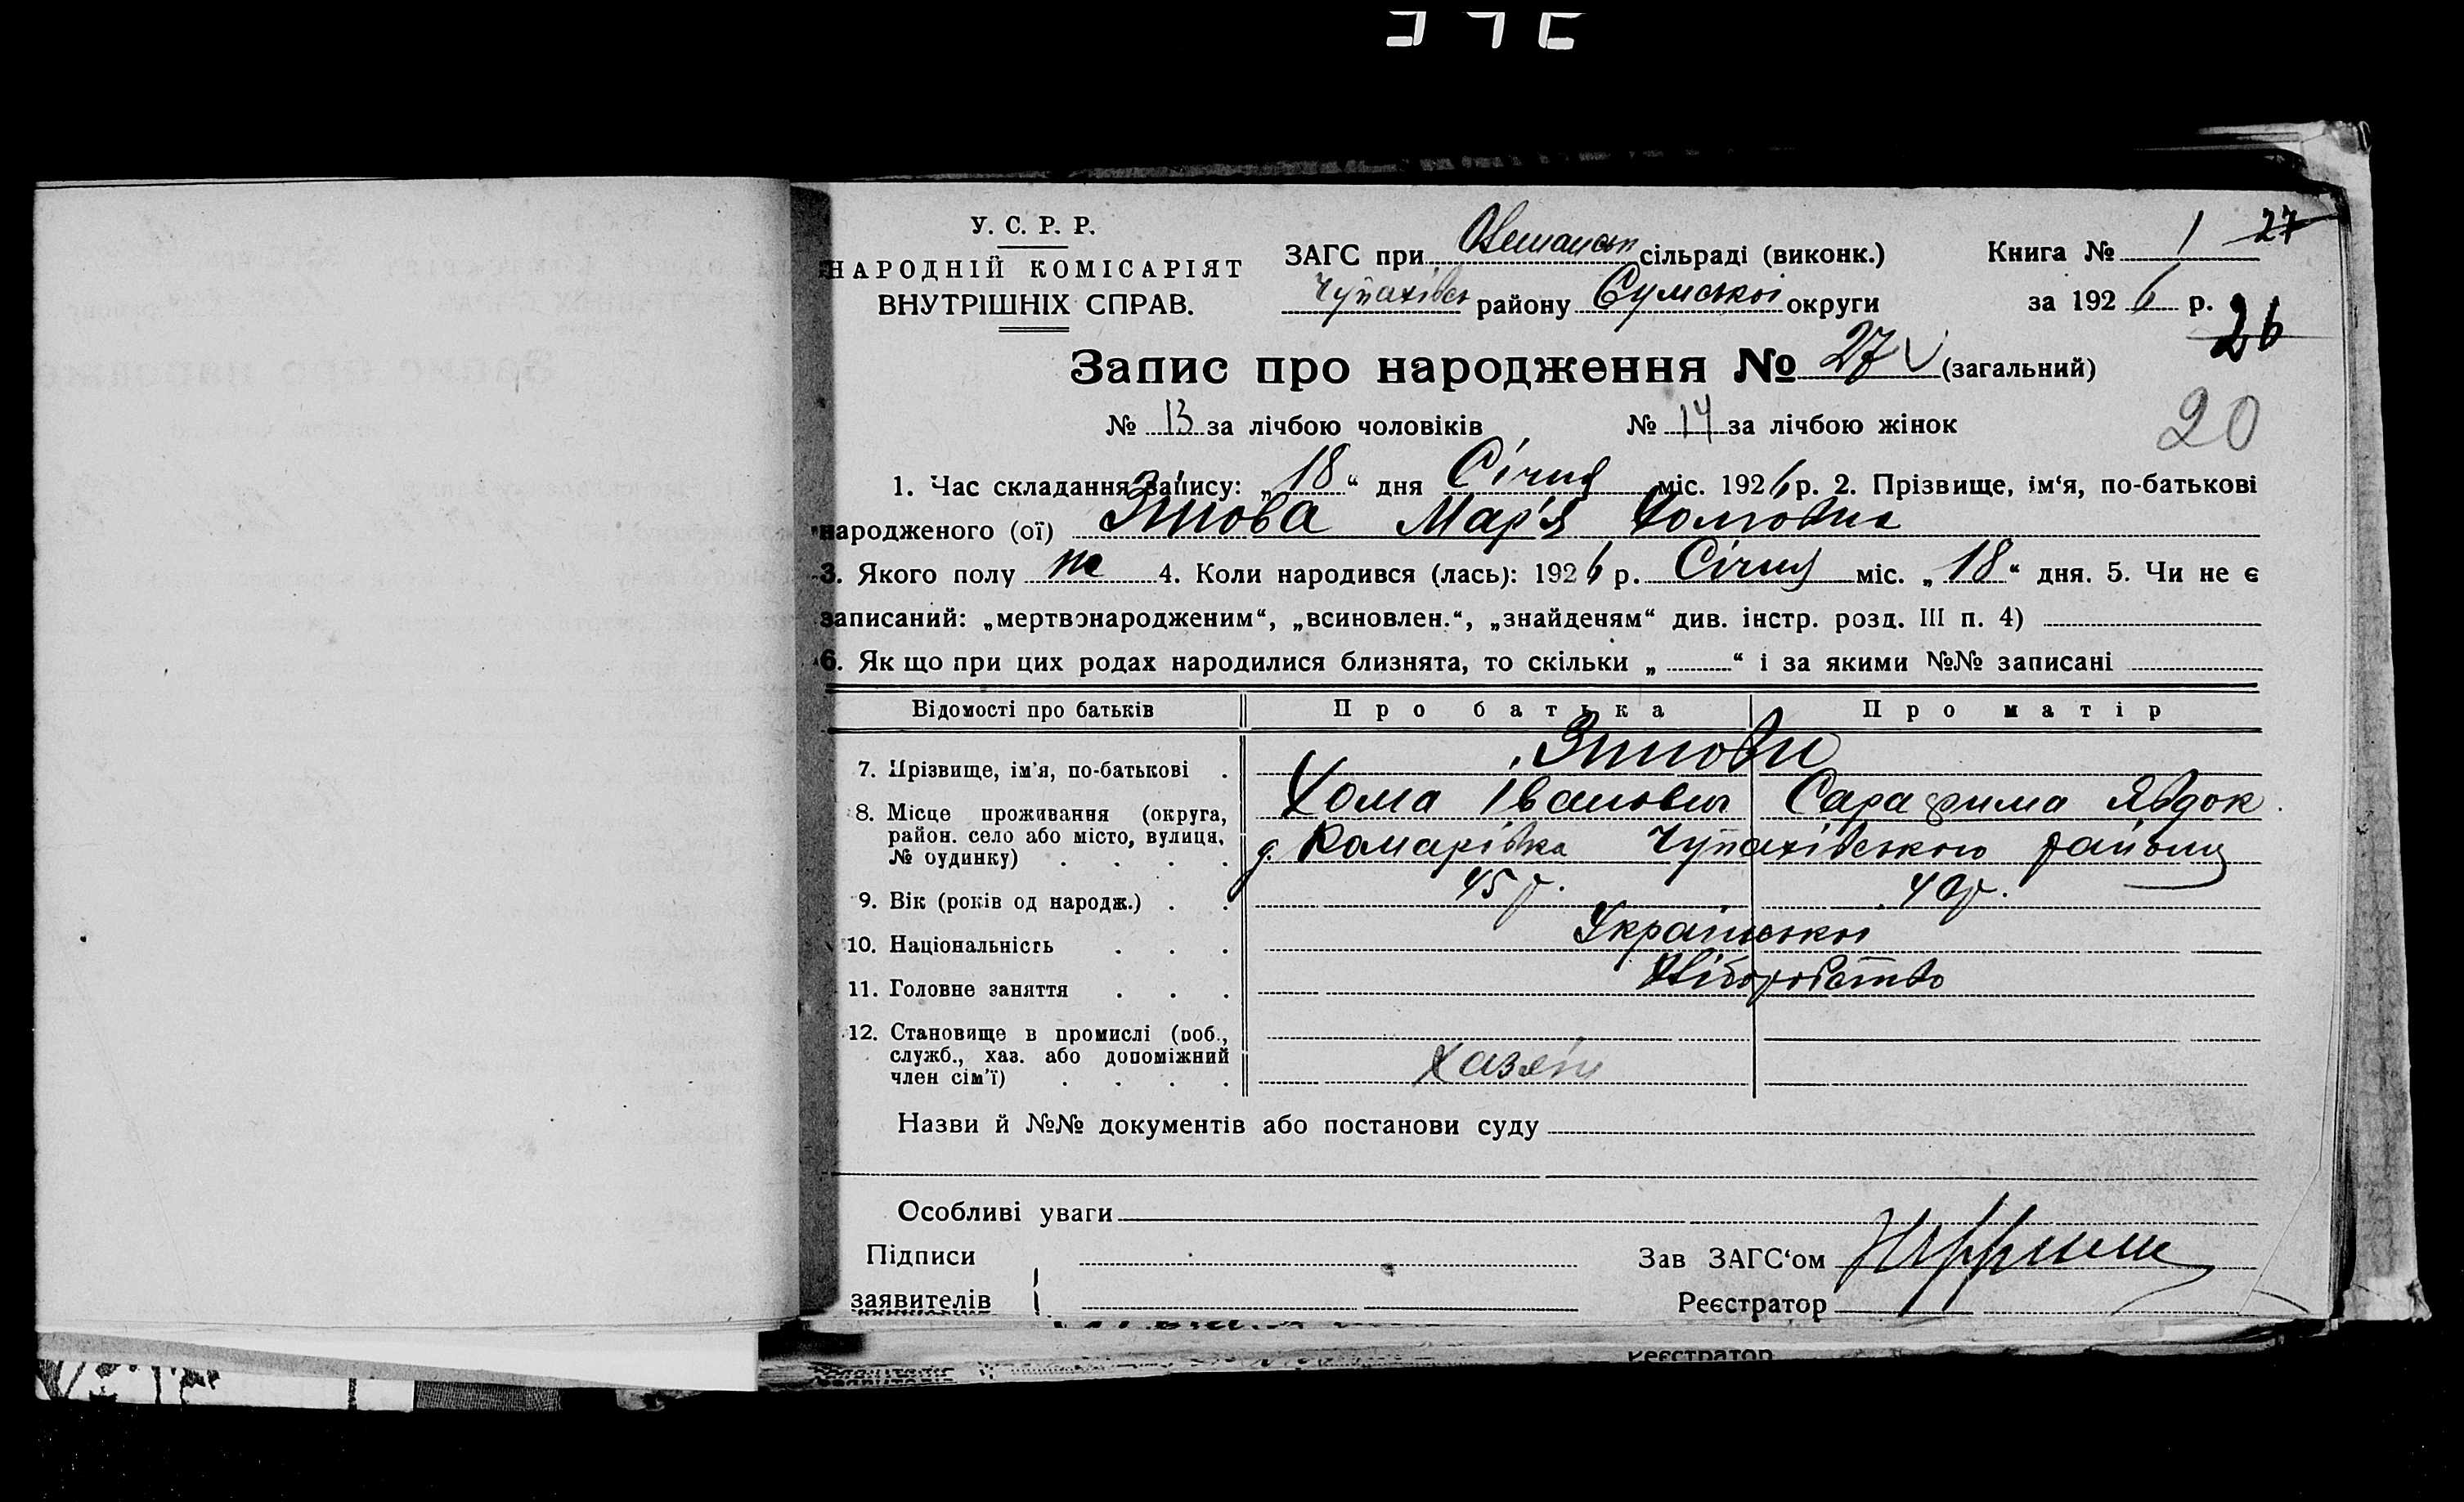 У. С. Р. Р.
НАРОДНІЙ КОМІСАРІЯТ
ВНУТРІШНІХ СПРАВ.
ЗАГС при сільраді (виконк.)
Чупахівсь району Сумської округи
Книга № 1 27
за 1926 р.
26
Запис про народження № 27 (загальний)
№ 13 за лічбою чоловіків № 14 за лічбою жінок
20
1. Час складання запису: „18“ дня Січня міс. 1926 р. 2. Прізвище, ім‘я, по-батькові
народженого (ої) Зитова Мар'я Хомовна
3. Якого полу ж 4. Коли народився (лась): 1926 р. Січня міс. „18“ дня. 5. Чи не є
записаний: „мертвонародженим“, „всиновлен.“, „знайденям“ див. інстр. розд. III п. 4)
6. Як що при цих родах народилися близнята, то скільки „ “ і за якими №№ записані
Відомості про батьків Про батька Про матір
Зитови
7. Прізвище, ім'я, по-батькові . Хома Іванович Сарафима Явдок.
8. Місце проживання (округа,
район. село або місто, вулиця,
№ будинку) . . . . д. Комарівка Чупахівського району
9. Вік (років од народж.) . . 45 р. 40 р.
10. Національність . . . Української
11. Головне заняття . . . Хліборобство
12. Становище в промислі (роб.,
служб., хаз. або допоміжний
член сім'ї) . . . . Хазяїн
Назви й №№ документів або постанови суду
Особливі уваги
Підписи
заявителів
Зав ЗАГС‘ом
Реєстратор
Реєстратор